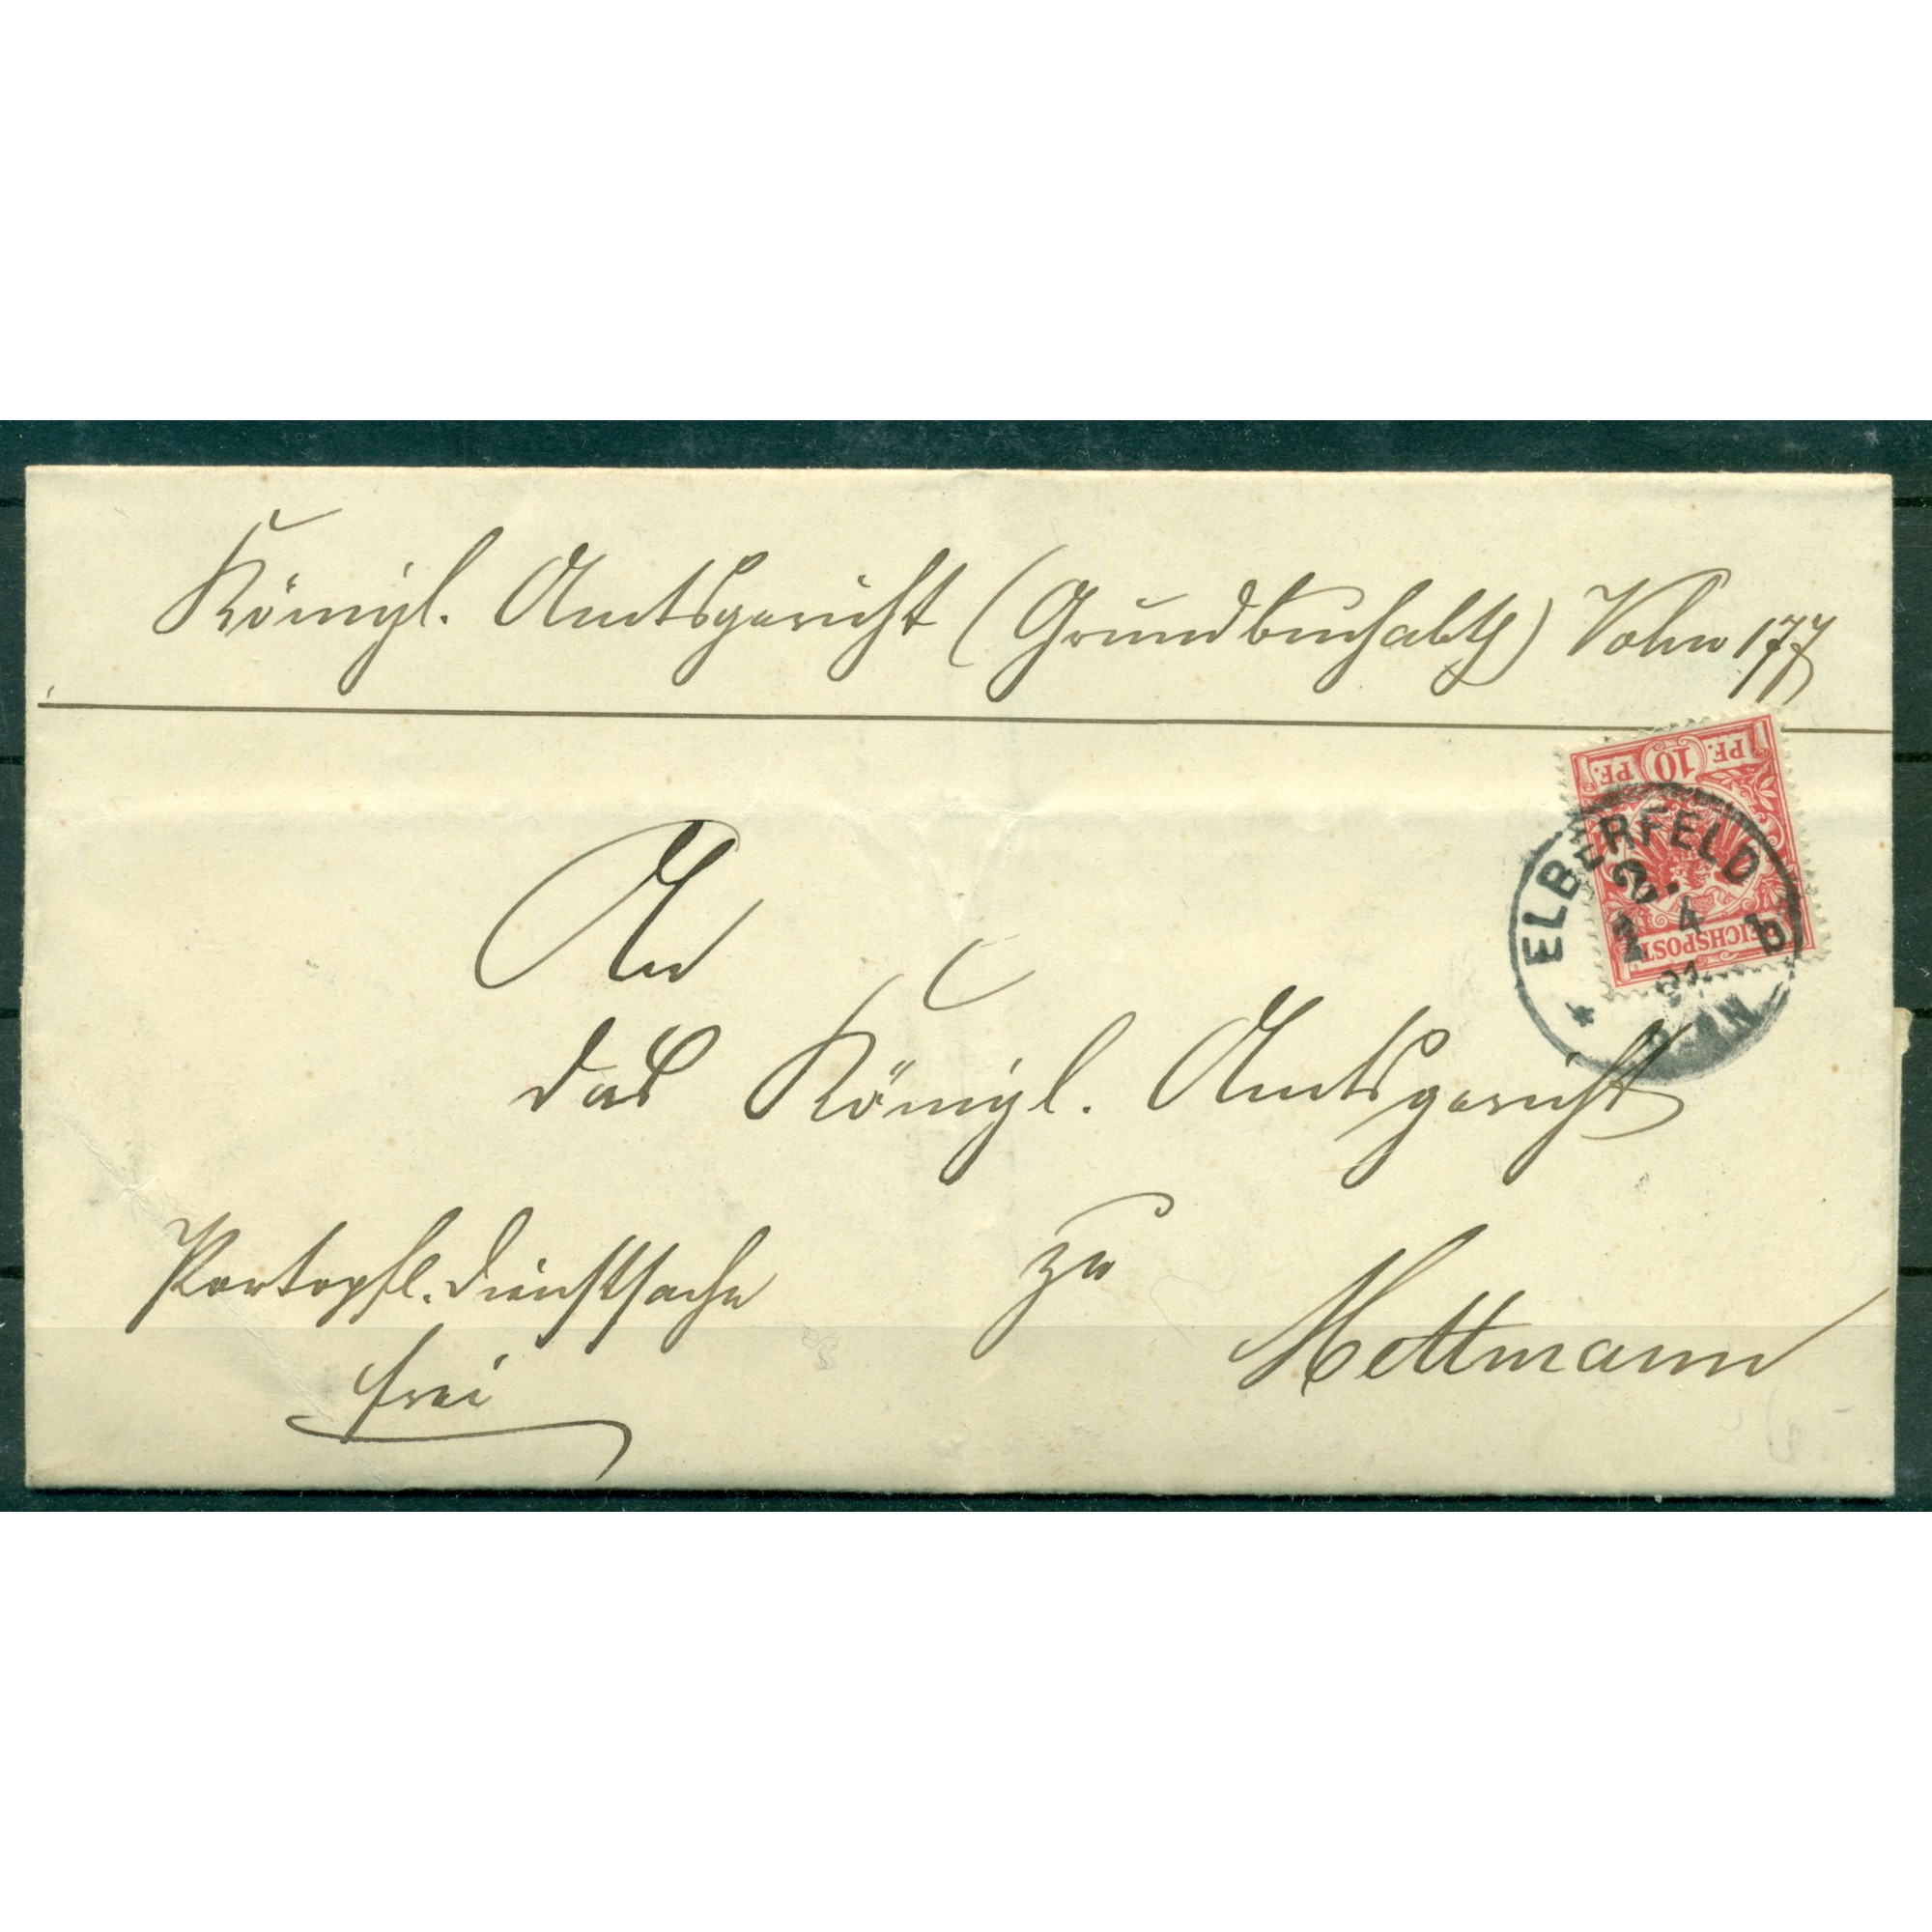 Königl. Amtsgericht (Grundbuchabth) 177
PF. 10 PF.
REICHSPOST
ELBERFELD
2. 4
b
N
An
das Königl. Amtsgericht
zu
Mettmann
Portopfl. Dienstsache
frei